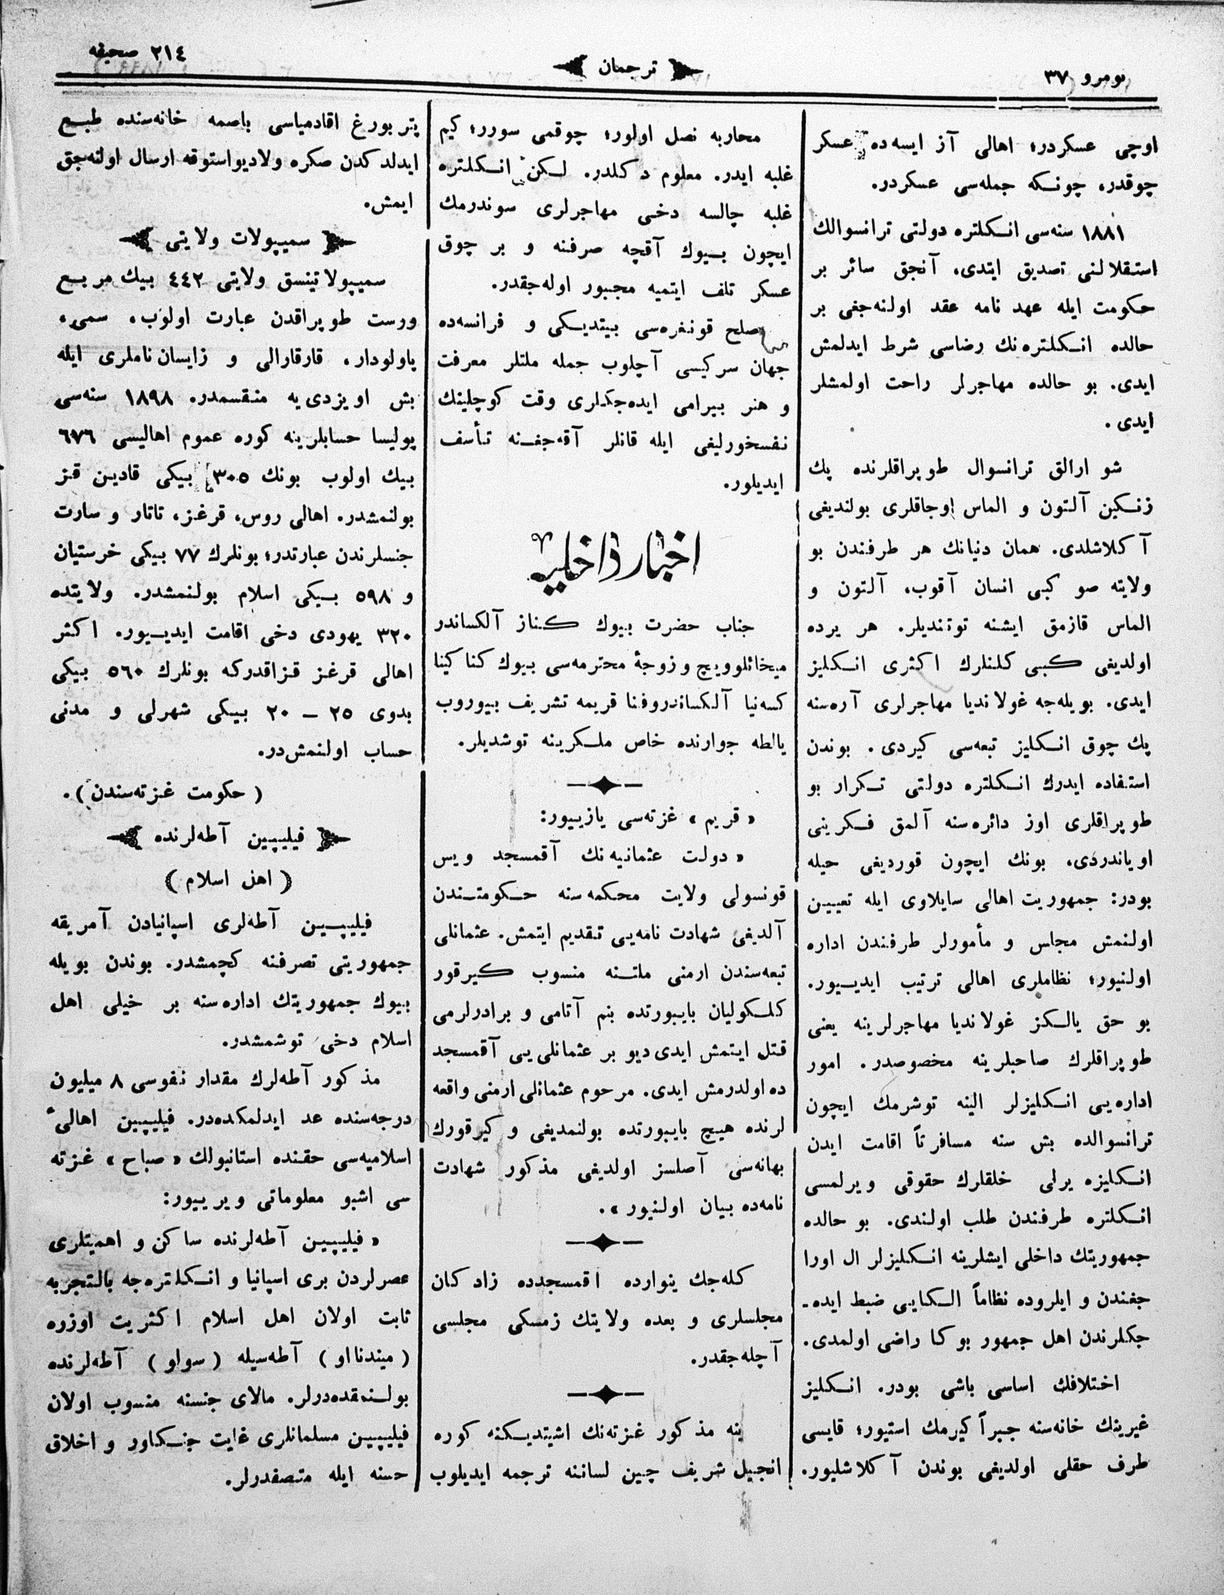 نومرو ٣٧
ترجمان
٢١٤ صحيفه
اوچى عسكردر؛ اهالى آز ايسه‌ده عسكر
چوقدر، چونكه جمله‌سى عسكردر.
١٨٨١ سنه‌سى انكلتره دولتى ترانسوالك
استقلالنى تصديق ايتدى، آنجق سائر بر
حكومت ايله عهد نامه عقد اولنه‌جغى بر
حالده انكلتره‌نك رضاسى شرط ايدلمش
ايدى. بو حالده مهاجرلر راحت اولمشلر
ايدى.
شو ارالق ترانسوال طوپراقلرنده پك
زنكين آلتون و الماس اوجاقلرى بولنديغى
آكلاشلدى. همان دنيانك هر طرفندن بو
ولايته صو كبى انسان آقوب، آلتون و
الماس قازمق ايشنه توتنديلر. هر يرده
اولديغى كبى كلنلرك اكثرى انكليز
ايدى. بويله‌جه غولانديا مهاجرلرى آره‌سنه
پك چوق انكليز تبعه‌سى كيردى. بوندن
استفاده ايدرك انكلتره دولتى تكرار بو
طوپراقلرى اوز دائره‌سنه آلمق فكرينى
اوياندردى، بونك ايچون قورديغى حيله
بودر: جمهوريت اهالى سايلاوى ايله تعيين
اولنمش مجلس و مأمورلر طرفندن اداره
اولنيور؛ نظاملرى اهالى ترتيب ايدييور.
بو حق يالكز غولانديا مهاجرلرينه يعنى
طوپراقلرك صاحبلرينه مخصوصدر. امور
اداره‌يى انكليزلر الينه توشرمك ايچون
ترانسوالده بش سنه مسافرتاً اقامت ايدن
انكليزه يرلى خلقلرك حقوقى ويرلمسى
انكلتره طرفندن طلب اولندى. بو حالده
جمهوريتك داخلى ايشلرينه انكليزلر ال اورا
جغندن و ايلروده نظاماً الكايى ضبط ايده‌ـ
جكلرندن اهل جمهور بوكا راضى اولمدى.
اختلافك اساسى باشى بودر. انكليز
غيرينك خانه‌سنه جبراً كيرمك استيور؛ قايسى
طرف حقلى اولديغى بوندن آكلاشليور.
محاربه نصل اولور؛ چوقمى سورر؛ كيم
غلبه ايدر. معلوم دكلدر. لكن انكلتره
غلبه چالسه دخى مهاجرلرى سوندرمك
ايچون بيوك آقچه صرفنه و بر چوق
عسكر تلف ايتميه مجبور اوله‌جقدر.
صلح قونفره‌سى بيتديكى و فرانسه‌ده
جهان سركيسى آچلوب جمله ملتلر معرفت
و هنر بيرامى ايده‌جكلرى وقت كوچليتك
نفسخورليغى ايله قانلر آقه‌جغنه تأسف
ايديلور.
اخبار داخليه
جناب حضرت بيوك كناز آلكساندر
ميخائلوويچ و زوجهٔ محترمه‌سى بيوك كناكينا
كسه‌نيا آلكساندروفنا قريمه تشريف بيوروب
يالطه جوارنده خاص ملكرينه توشديلر.
« قريم » غزته‌سى يازييور:
« دولت عثمانيه‌نك آقمسجد ويس
قونسولى ولايت محكمه‌سنه حكومتندن
آلديغى شهادت نامه‌يى تقديم ايتمش. عثمانلى
تبعه‌سندن ارمنى ملتنه منسوب كيرقور
كلكوليان بايبورتده بنم آتامى و برادرلرمى
قتل ايتمش ايدى ديو بر عثمانلى‌يى آقمسجد
ده اولدرمش ايدى. مرحوم عثمانلى ارمنى واقعه
لرنده هيچ بايبورتده بولنمديغى و كيرقورك
بهانه‌سى آصلسز اولديغى مذكور شهادت
نامه‌ده بيان اولنيور ».
كله‌جك ينوارده اقمسجدده زادكان
مجلسلرى و بعده ولايتك زمسكى مجلسى
آچله‌جقدر.
ينه مذكور غزته‌نك اشيتديكنه كوره
انجيل شريف چين لساننه ترجمه ايديلوب
پتربورغ اقادمياسى باصمه خانه‌سنده طبع
ايدلدكدن صكره ولاديواستوقه ارسال اولنه‌جق
ايمش.
سميپولات ولايتى
سميپولاتينسق ولايتى ٤٤٢ بيك مربع
ورست طوپراقدن عبارت اولوب، سمى،
پاولودار، قارقارالى و زايسان ناملرى ايله
بش اويزدى‌يه منقسمدر. ١٨٩٨ سنه‌سى
پوليسا حسابلرينه كوره عموم اهاليسى ٦٧٦
بيك اولوب بونك ٣٠٥ بيكى قادين قز
بولنمشدر. اهالى روس، قرغز، تاتار و سارت
جنسلرندن عبارتدر؛ بونلرك ٧٧ بيكى خرستيان
و ٥٩٨ بيكى اسلام بولنمشدر. ولايتده
٣٢٠ يهودى دخى اقامت ايدييور. اكثر
اهالى قرغز قزاقدركه بونلرك ٥٦٠ بيكى
بدوى ٢٥ – ٢٠ بيكى شهرلى و مدنى
حساب اولنمش‌در.
( حكومت غزته‌سندن ).
فيليپين آطه‌لرنده
( اهل اسلام )
فيليپين آطه‌لرى اسپانيادن آمريقه
جمهوريتى تصرفنه كچمشدر. بوندن بويله
بيوك جمهوريتك اداره‌سنه بر خيلى اهل
اسلام دخى توشمشدر.
مذكور آطه‌لرك مقدار نفوسى ٨ ميليون
درجه‌سنده عد ايدلمكده‌در. فيليپين اهالىٔ
اسلاميه‌سى حقنده استانبولك « صباح » غزته
سى اشبو معلوماتى ويرييور:
« فيليپين آطه‌لرنده ساكن و اهميتلرى
عصرلردن برى اسپانيا و انكلتره‌جه بالتجربه
ثابت اولان اهل اسلام اكثريت اوزره
( ميندنااو ) آطه‌سيله ( سولو ) آطه‌لرنده
بولنمقده‌درلر. مالاى جنسنه منسوب اولان
فيليپين مسلمانلرى غايت جنكاور و اخلاق
حسنه ايله متصفدرلر.